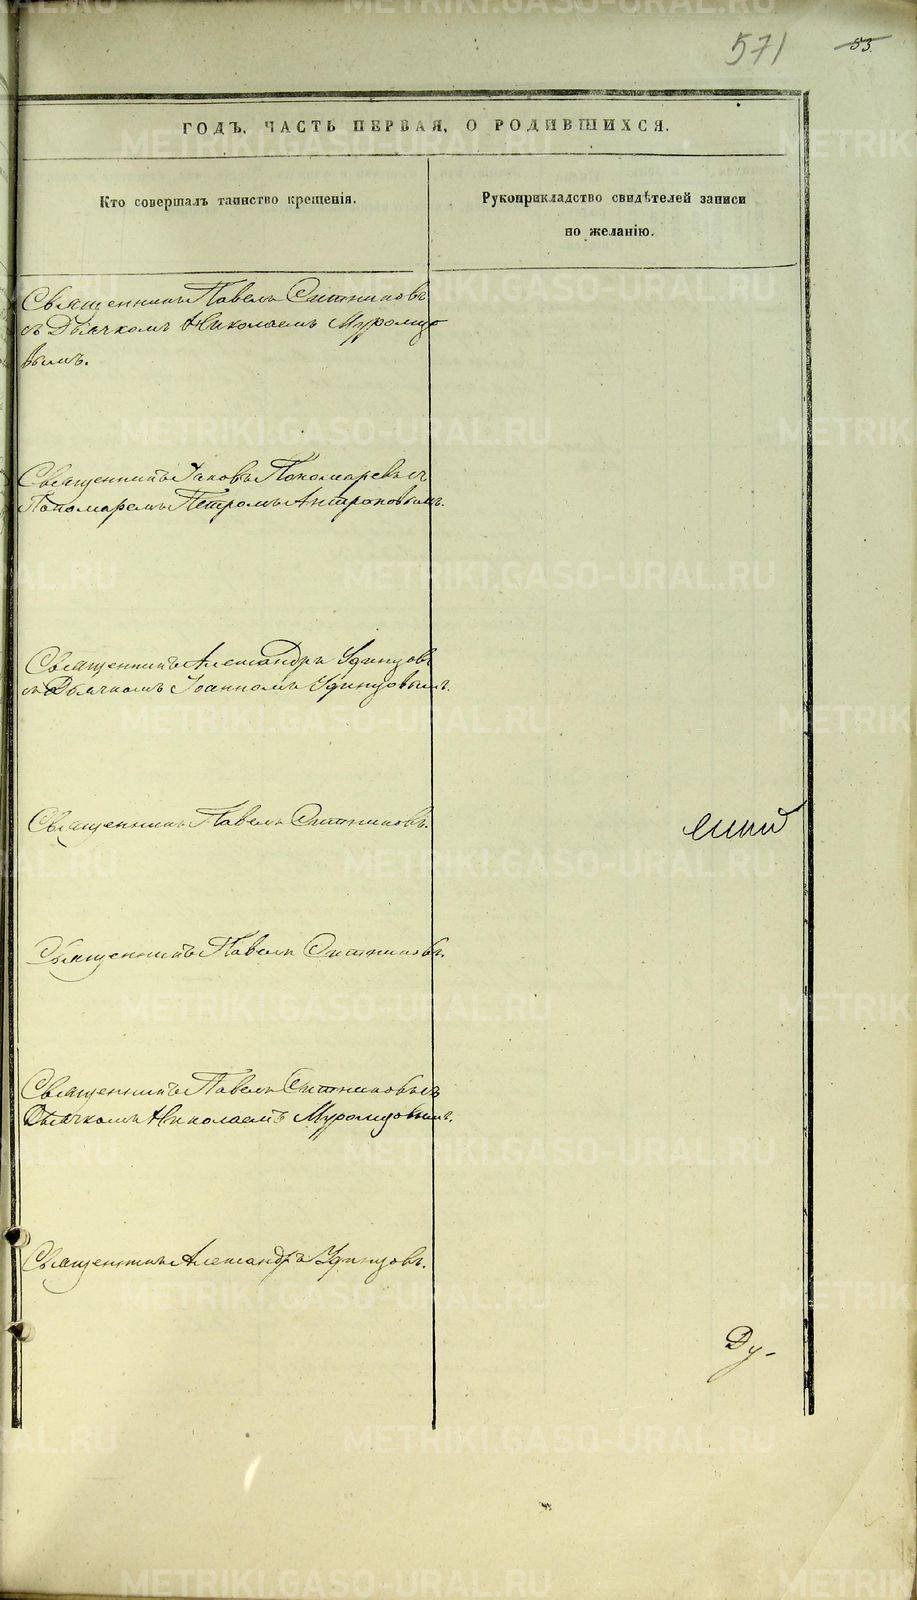 571 53.
ГОДЪ, ЧАСТЬ ПЕРВАЯ, О РОДИВШИХСЯ.
Кто совершалъ таинство крещенія.
Рукоприкладство свидѣтелей записи
по желанію.
Священникъ Павелъ Ситниковъ
съ Дьячкомъ Николаемъ Муромцо
вымъ.
Священникъ Іаковъ Пономаревъ съ
Пономаремъ Петромъ Антроповымъ.
Священникъ Александръ Удинцовъ
съ Дьячкомъ Іоанномъ Удинцовымъ.
Священникъ Павелъ Ситниковъ.
Священникъ Павелъ Ситниковъ.
Священникъ Павелъ Ситниковъ съ
Дьячкомъ Николаемъ Муромцовымъ.
Священникъ Александръ Удинцовъ.
Ду-
METRIKI.GASO-URAL.RU